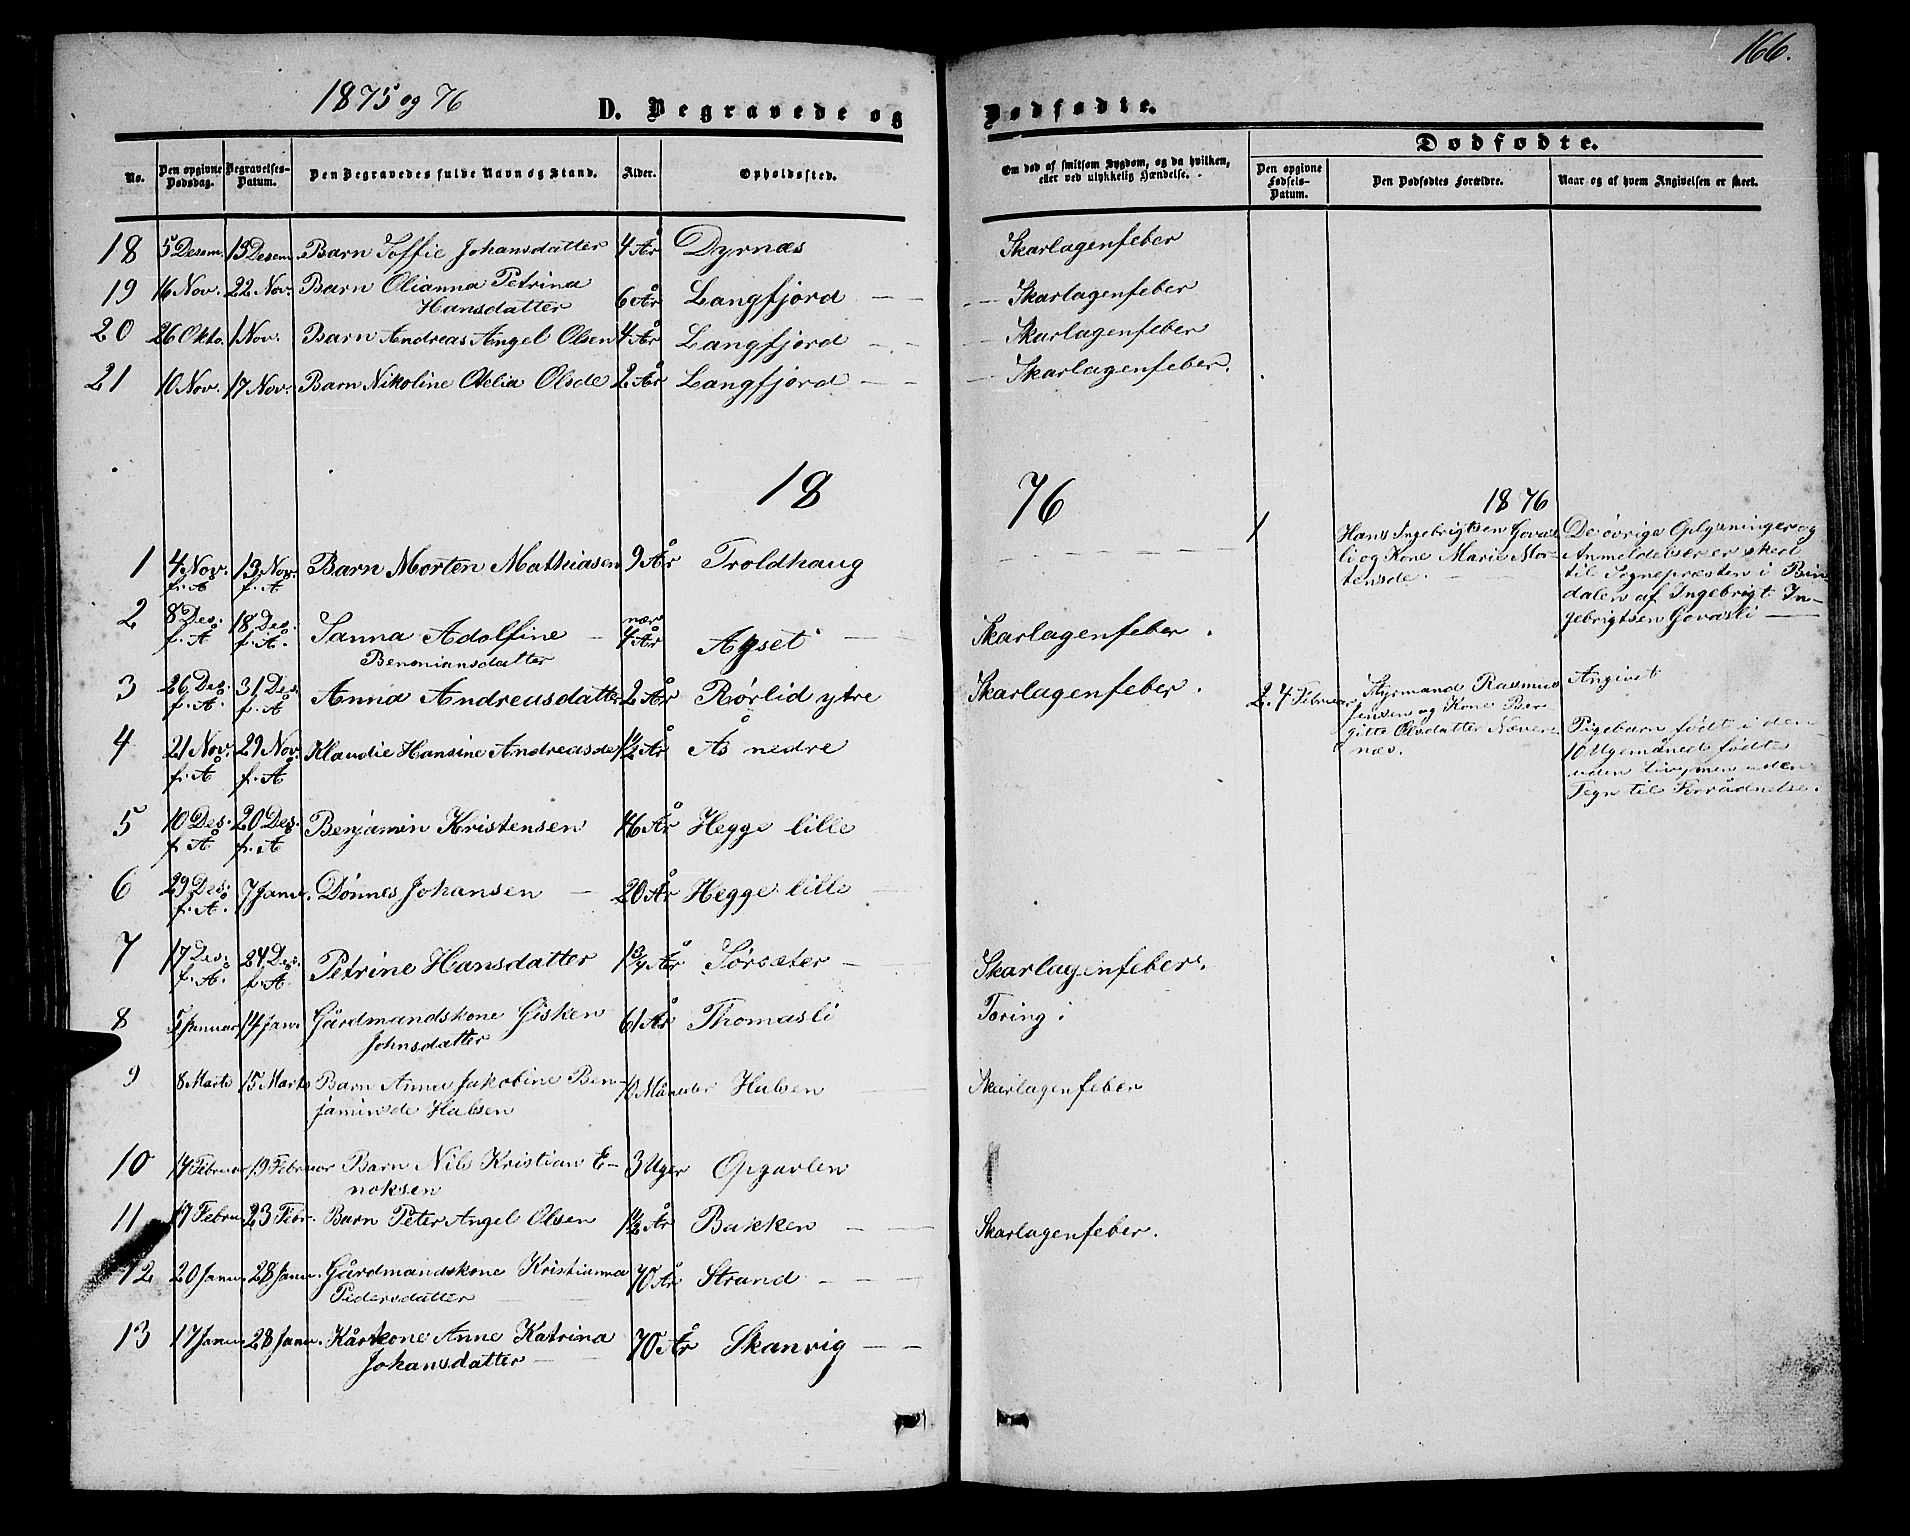 166.
1875 og 76
D. Begravede og Dødfødte.
Dødfødte.
No.
Den opgivne Dødsdag.
Begravelses-Datum.
Den Begravedes fulde Navn og Stand.
Alder.
Opholdssted.
Om død af smitsom Sygdom, og da hvilken, eller ved ulykkelig Hændelse.
Den opgivne Fødsels-Datum.
Den Dødfødtes Forældre.
Naar og af hvem Angivelsen er skeet.
18 5 Desem. 13 Desem. Barn Soffie Johansdatter 4 År Dyrnæs Skarlagenfeber
19 16 Nov. 22 Nov. Barn Olianna Petrina
Hansdatter 6 År Langfjord — — — Skarlagenfeber
20 26 Okto. 1 Nov. Barn Andreas Angel Olsen 4 År Langfjord — — — Skarlagenfeber
21 10 Nov. 17 Nov. Barn Nikoline Otelia Olsde 2 År Langfjord — — — Skarlagenfeber.
1876
1 4 Nov. 13 Nov. Barn Morten Mathiasen 9 År Troldhaug
f. A f. A
2 8 Des. 18 Des. Sanna Adolfine — nær 4 År Apset — Skarlagenfeber.
f. Å f. Å. Benoniansdatter
3 26 Des. 31 Des. Anna Andreasdatter 2 År Rørlid ytre Skarlagenfeber.
f. A. f. A
4 21 Nov. 29 Nov. Klaudie Hansine Andreasde 1 1/2 År Ås nedre
f. Å f. Å
5 10 Des. 20 Des. Benjamin Kristensen 46 År Hegge lille
f. A f. A
6 29 Des. 7 Janu. Dønnes Johansen — 20 År Hegge lille
f. A.
7 17 Des. 24 Des. Petrine Hansdatter 1 3/4 År Sørseter — Skarlagenfeber.
f. A. f. A
8 5 Januar 14 Janu Gårdmandskone Gisken
Johnsdatter 61 År Thomasli Tæring.
9 8 Marts 15 Marts Barn Anna Jakobine Ben-
jaminsde Halsen 10 Måneder Halsen Skarlagenfeber
10 14 Februar 19 Februar Barn Nils Kristian E-
noksen 3 Uger Opgarlen
11 17 Febru 23 Febr. Barn Peter Angel Olsen 1 1/2 År Bakken — — Skarlagenfeber.
12 20 Janu. 28 Janu. Gårdmandskone Kristianna
Pedersdatter 70 År Strand
13 17 Janu. 28 Janu. Kårkone Anne Katrina
Johansdatter — 70 År Skanvig — —
1876
1 Hans Ingebrigtsen Govas-
li og Kone Marie Mor-
tensde.
De øvrige Oplysninger og
Anmeldelser er sked
til Sognepræsten i Bin
dalen af Ingebrigt In-
gebrigtsen Govasli —
2. 4 Februar Styrmand Rasmus
Jensen og Kone Ber
gitte Olsdatter Næver-
næs.
Angivet
Pigebarn født i den
10 Ugemåned fødte
uden livymen uden
Tegn til Forrådnelse.